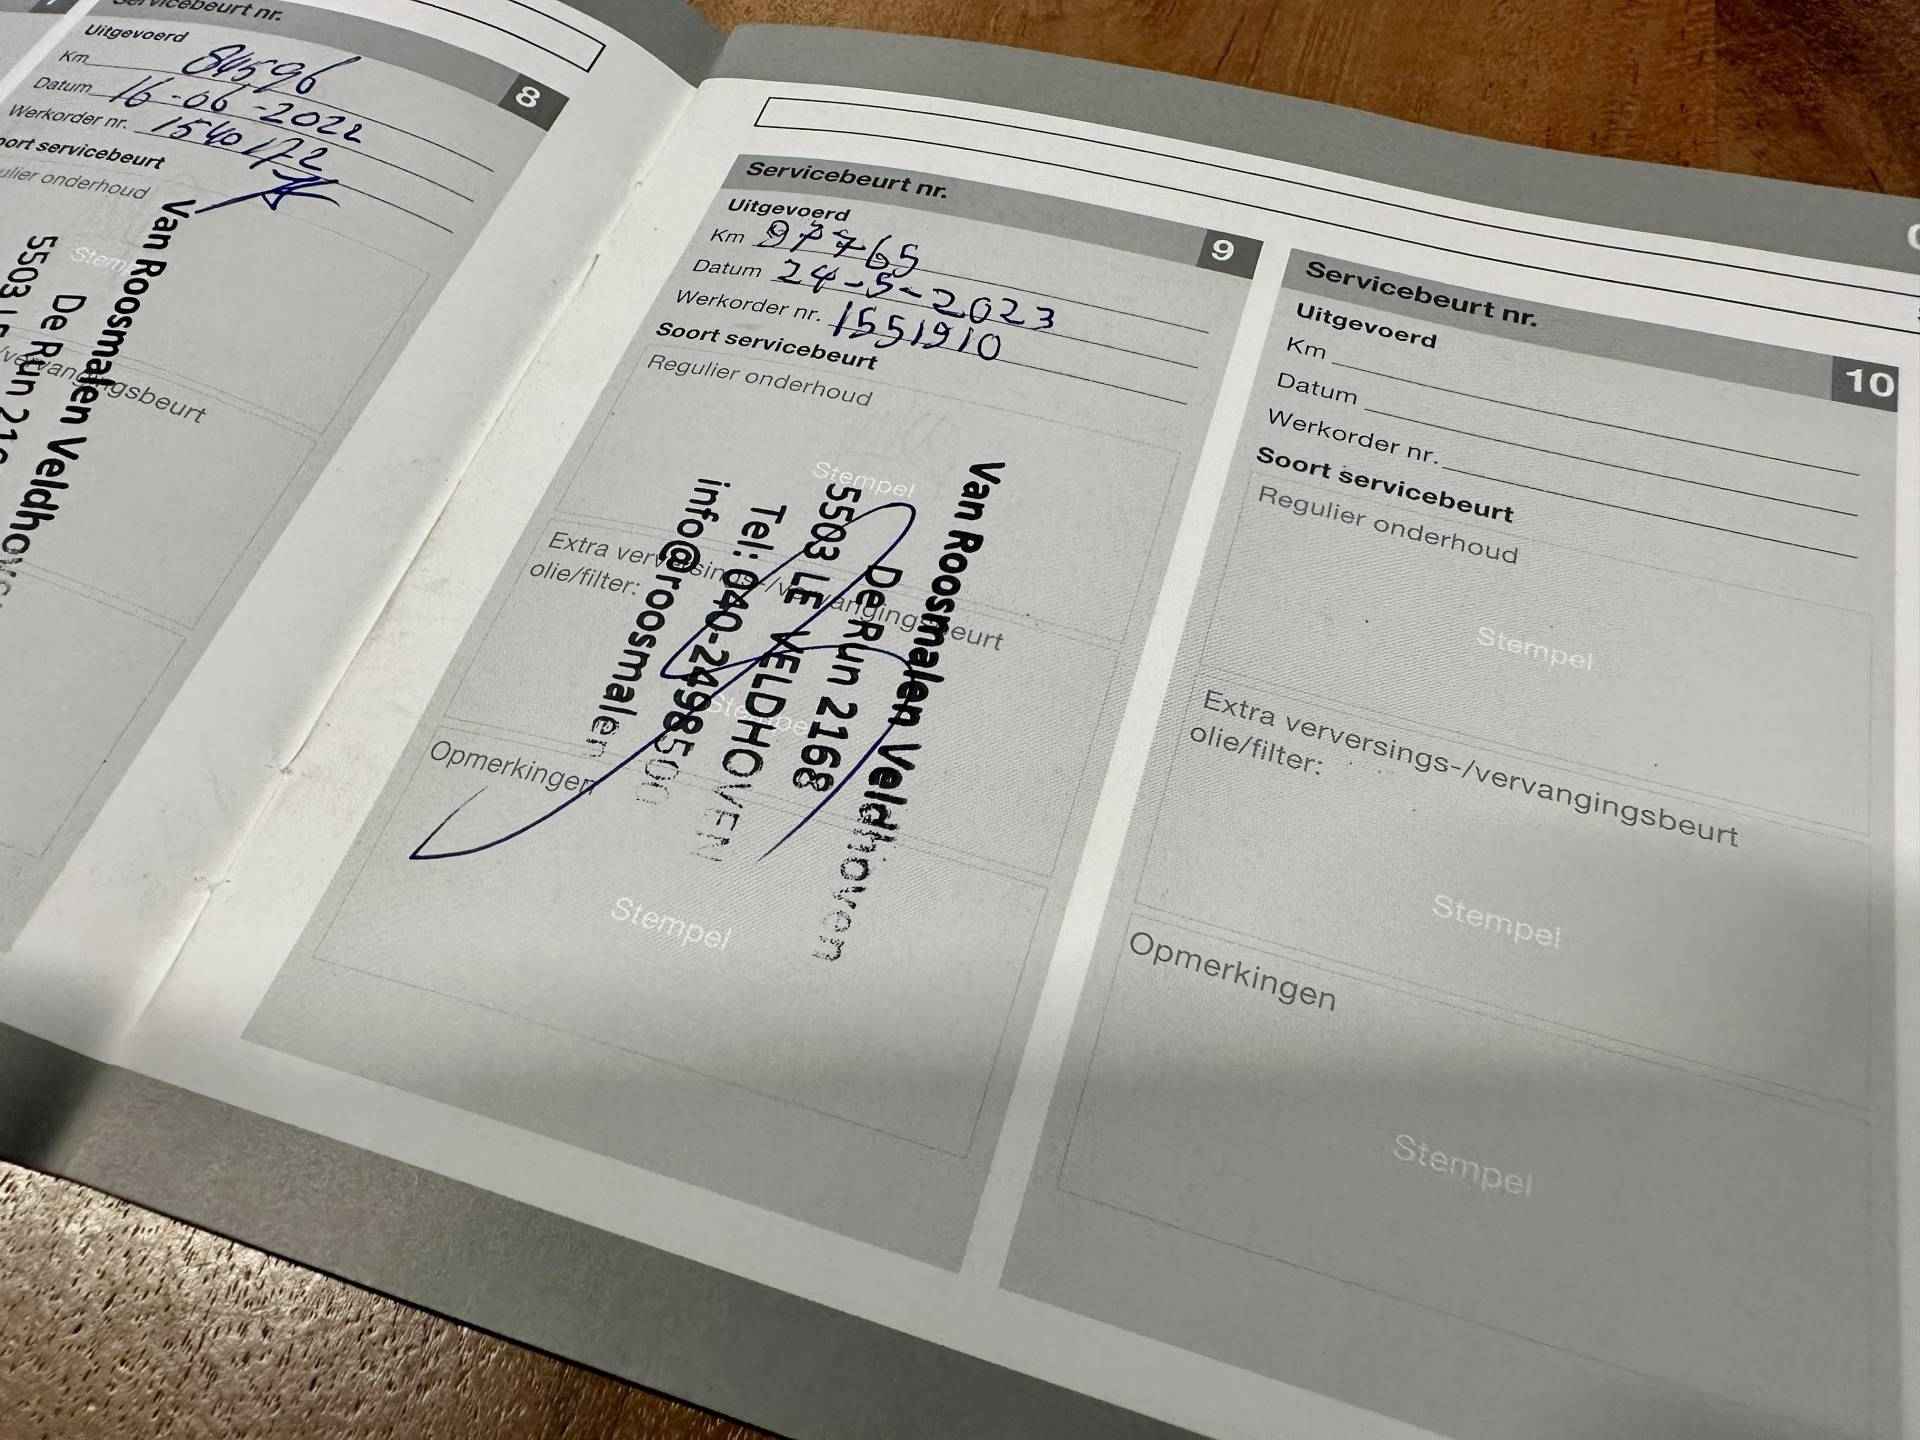 Servicebeurt nr.
8
Uitgevoerd
Km 84596
Datum 16-06-2022
Werkorder nr. 1540172
servicebeurt
onderhoud
Van Roosmalen
De Run
5503
Servicebeurt nr.
9
Uitgevoerd
Km 97765
Datum 24-5-2023
Werkorder nr. 1551910
Soort servicebeurt
Regulier onderhoud
Stempel
Extra verversings-/vervangingsbeurt
olie/filter:
Stempel
Opmerkingen
Stempel
Van Roosmalen Veldhoven
De Run 2168
5503 LE VELDHOVEN
Tel: 040-2498500
info@roosmalen
Servicebeurt nr.
10
Uitgevoerd
Km
Datum
Werkorder nr.
Soort servicebeurt
Regulier onderhoud
Stempel
Extra verversings-/vervangingsbeurt
olie/filter:
Stempel
Opmerkingen
Stempel